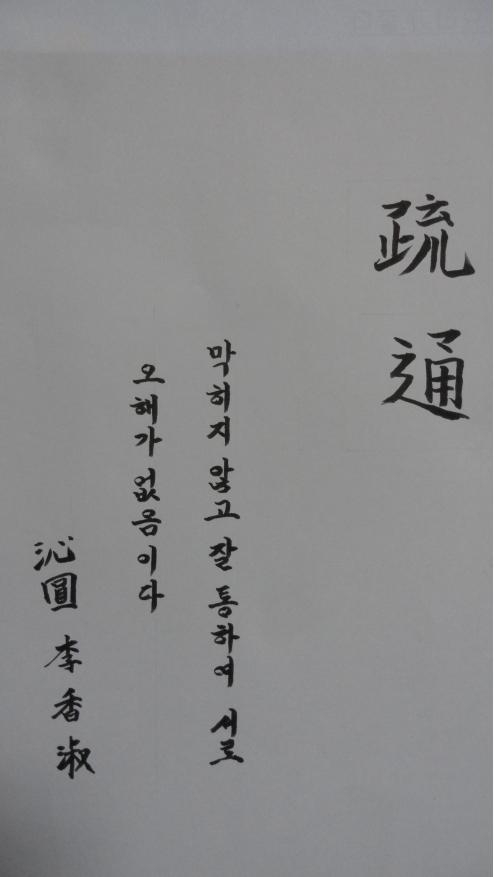 疏通
막히지 않고 잘 통하여 서로
오해가 없음이다
沁圓 李香淑